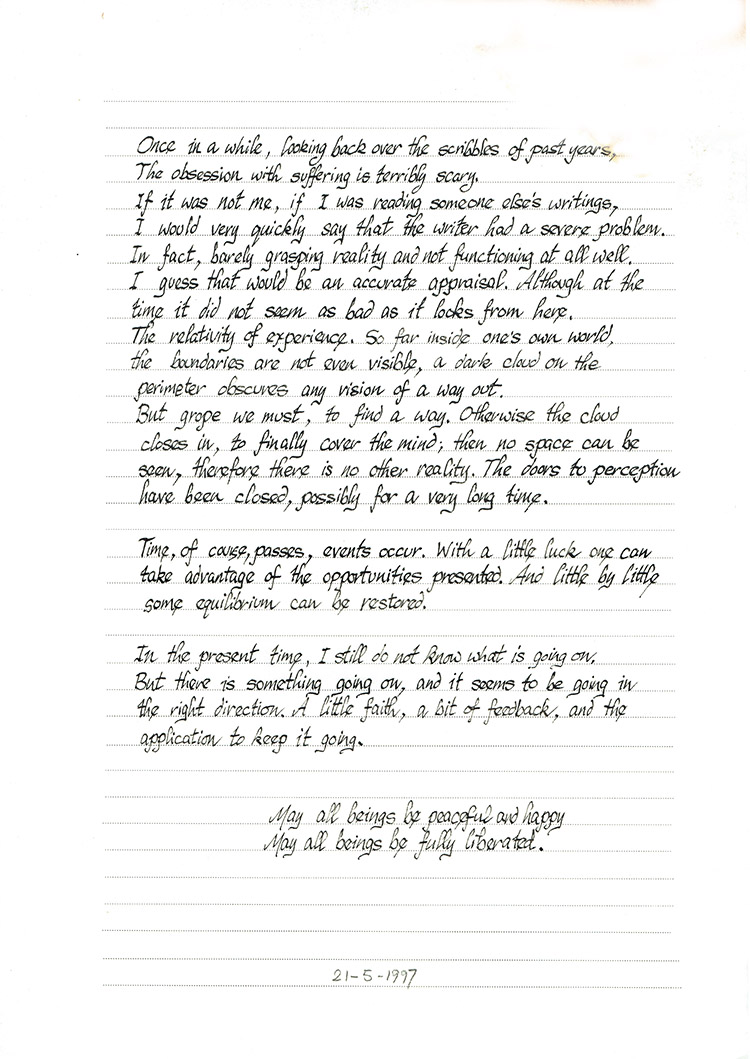 Once in a while, looking back over the scribbles of past years,
The obsession with suffering is terribly scary.
If it was not me, if I was reading someone else's writings,
I would very quickly say that the writer had a severe problem.
In fact, barely grasping reality and not functioning at all well.
I guess that would be an accurate appraisal. Although at the
time it did not seem as bad as it looks from here.
The relativity of experience. So far inside one's own world,
the boundaries are not even visible, a dark cloud on the
perimeter obscures any vision of a way out.
But grope we must, to find a way. Otherwise the cloud
closes in, to finally cover the mind; then no space can be
seen, therefore there is no other reality. The doors to perception
have been closed, possibly for a very long time.
Time, of couse, passes, events occur. With a little luck one can
take advantage of the opportunities presented. And little by little
some equilibrium can be restored.
In the present time, I still do not know what is going on.
But there is something going on, and it seems to be going in
the right direction. A little faith, a bit of feedback, and the
application to keep it going.
May all beings be peaceful and happy
May all beings be fully liberated.
21-5-1997